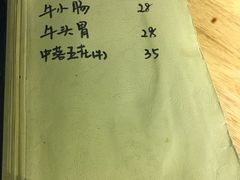 牛小肠 28
牛头胃 28
中岩五花(牛) 35